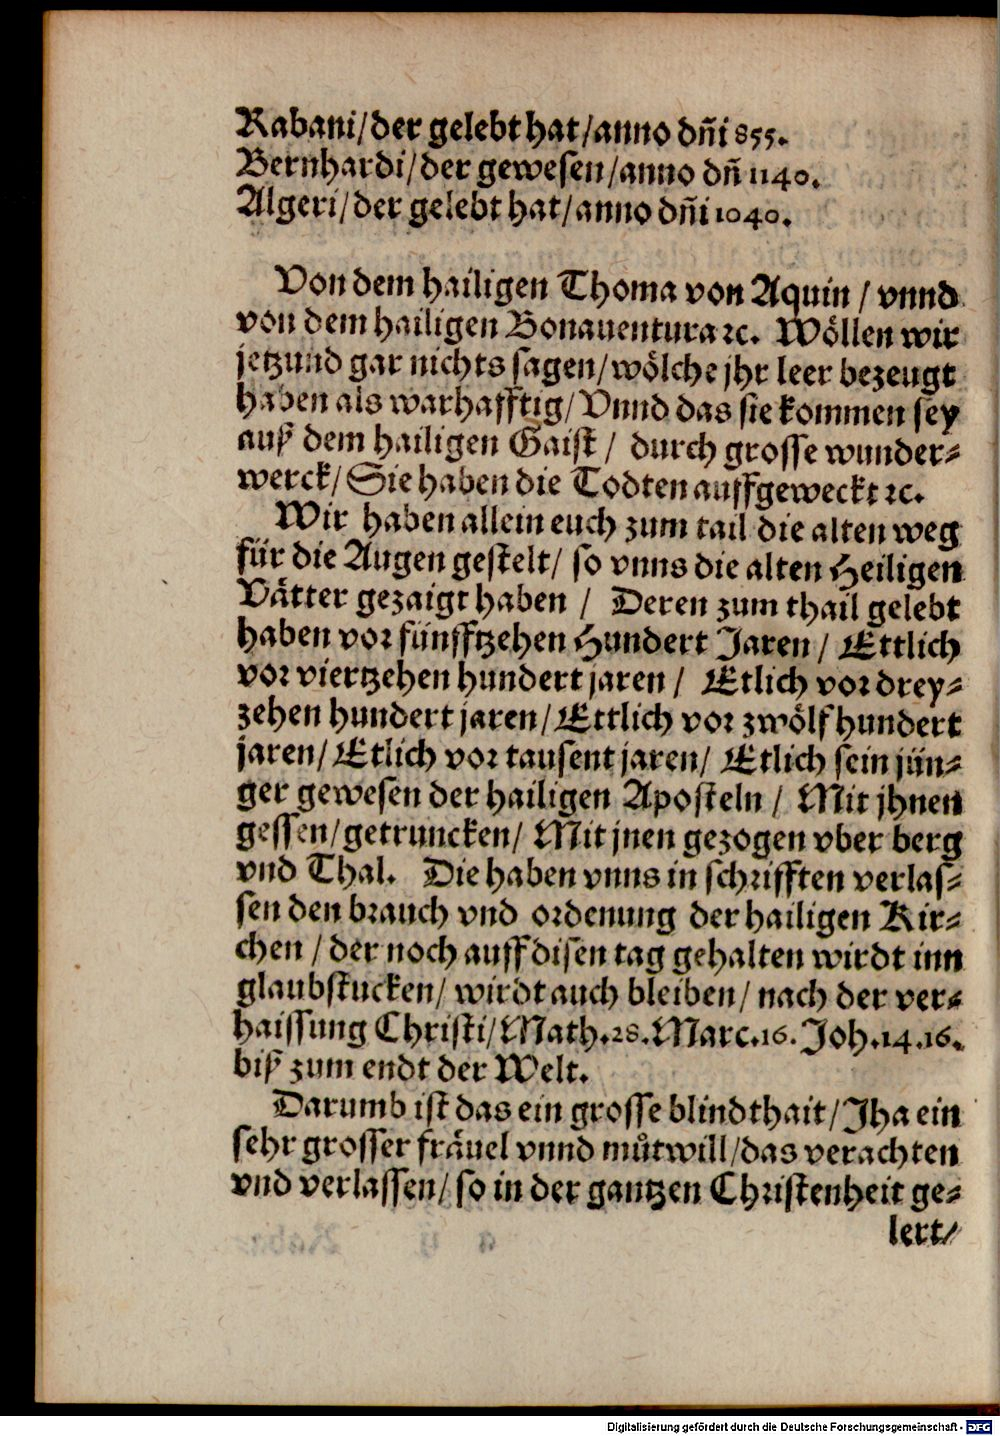 Rabani/der gelebt hat/anno dñi 855.
Bernhardi/der gewesen/anno dñ 1140.
Algeri/der gelebt hat/anno dñi 1040.
Von dem hailigen Thoma von Aquin / vnnd
von dem hailigen Bonauentura ꝛc. Wöllen wir
jetzund gar nichts sagen/wölche jhr leer bezeugt
haben als warhafftig/Vnnd das sie kommen sey
auß dem hailigen Gaist / durch grosse wunder⸗
werck/Sie haben die Todten auffgeweckt ꝛc.
Wir haben allein euch zum tail die alten weg
für die Augen gestelt/ so vnns die alten Heiligen
Vätter gezaigt haben / Deren zum thail gelebt
haben vor fünfftzehen Hundert Jaren / Ettlich
vor viertzehen hundert jaren / Etlich vor drey⸗
zehen hundert jaren/Ettlich vor zwölf hundert
jaren/Etlich vor tausent jaren/ Etlich sein jün⸗
ger gewesen der hailigen Aposteln / Mit jhnen
gessen/getruncken/ Mit jnen gezogen vber berg
vnd Thal. Die haben vnns in schrifften verlas⸗
sen den brauch vnd ordenung der hailigen Kir⸗
chen / der noch auff disen tag gehalten wirdt inn
glaubstucken/ wirdt auch bleiben/ nach der ver⸗
haissung Christi/Math.28.Marc.16. Joh.14.16.
biß zum endt der Welt.
Darumb ist das ein grosse blindthait/Jha ein
sehr grosser fräuel vnnd můtwill/das verachten
vnd verlassen/ so in der gantzen Christenheit ge⸗
lert/
Digitalisierung gefördert durch die Deutsche Forschungsgemeinschaft - DFG